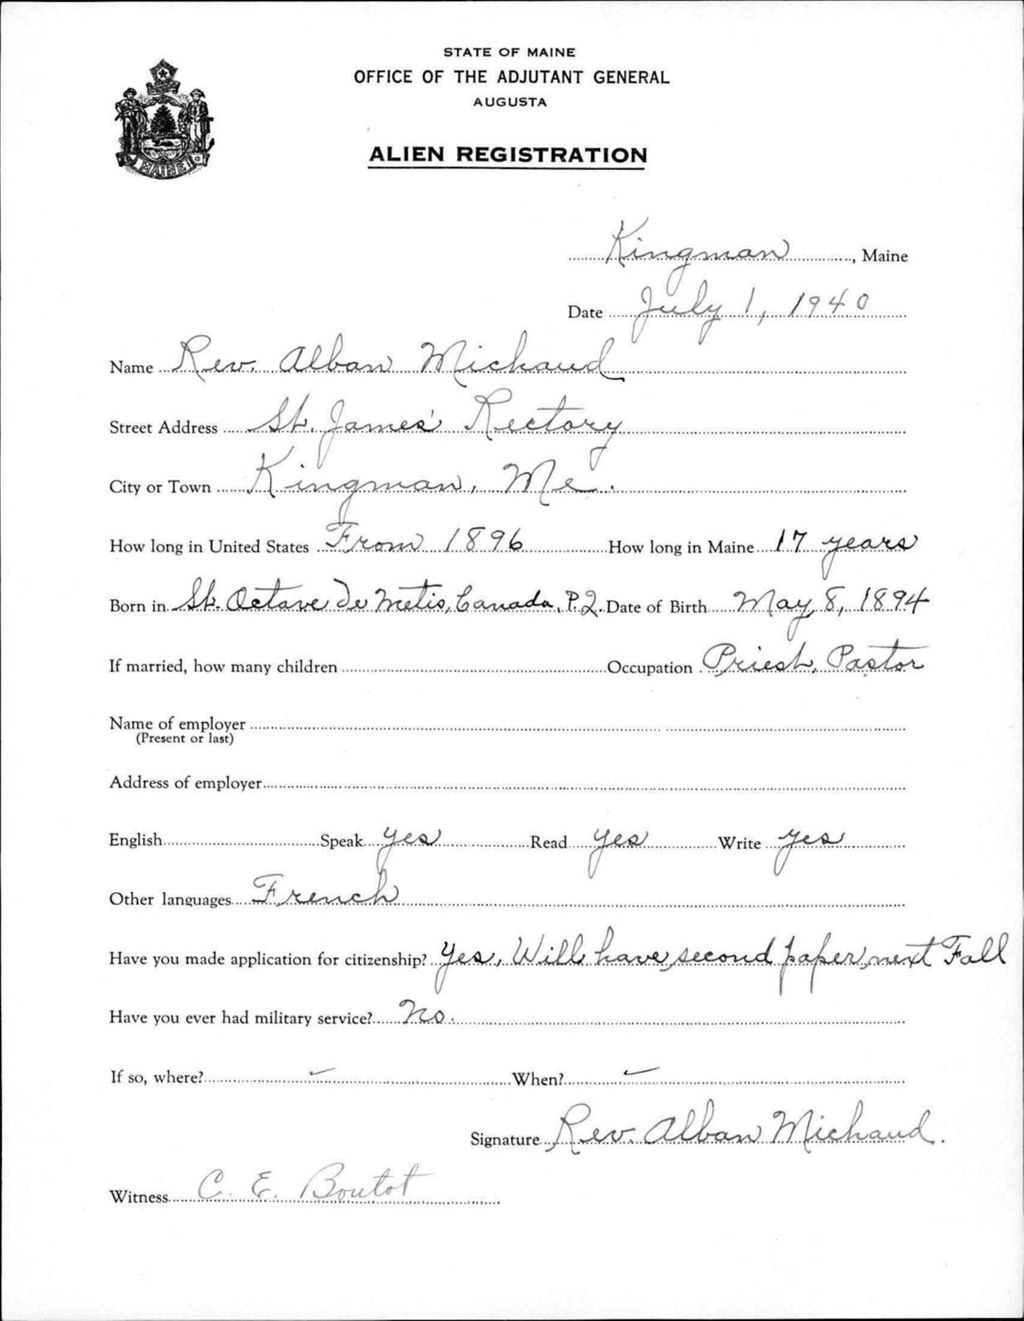 STATE OF MAINE
OFFICE OF THE ADJUTANT GENERAL
AUGUSTA
ALIEN REGISTRATION
MAINE
Kingman, Maine
Date July 1, 1940
Name Rev. Alban Michaud
Street Address St. James' Rectory
City or Town Kingman, Me.
How long in United States From 1896 How long in Maine 17 years
Born in St. Octave De Metis, Canada, P.Q. Date of Birth May 8, 1894
If married, how many children Occupation Priest, Pastor
Name of employer
(Present or last)
Address of employer
English Speak yes Read yes Write yes
Other languages French
Have you made application for citizenship? Yes, Will have second paper next Fall
Have you ever had military service? No.
If so, where? – When? –
Signature Rev. Alban Michaud.
Witness C. E. Boutot